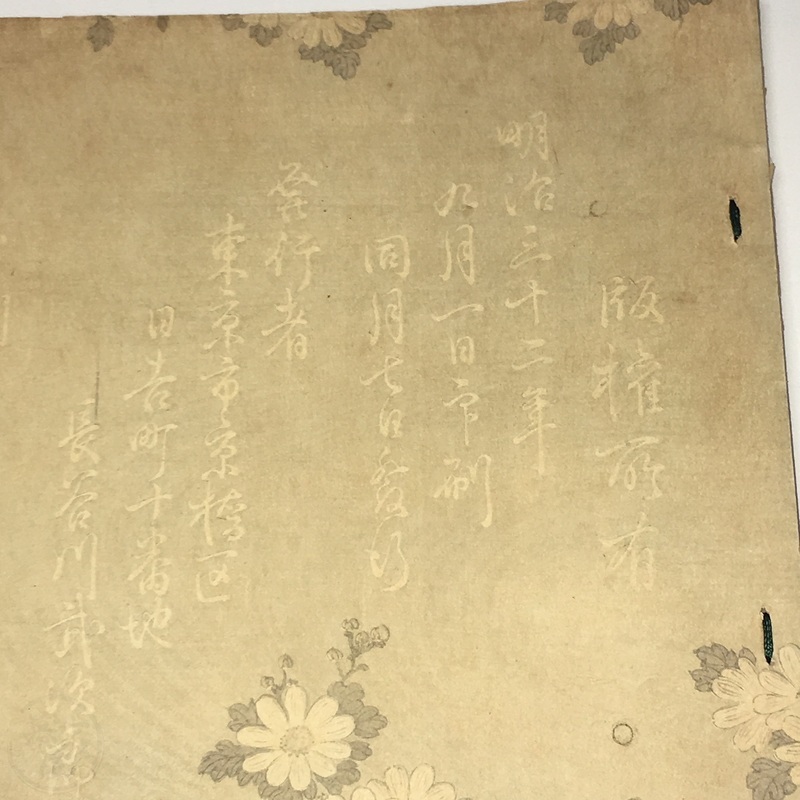 版権所有
明治三十二年
九月一日印刷
同月七日發行
發行者
東京市京橋区
日吉町十番地
長谷川武次郎